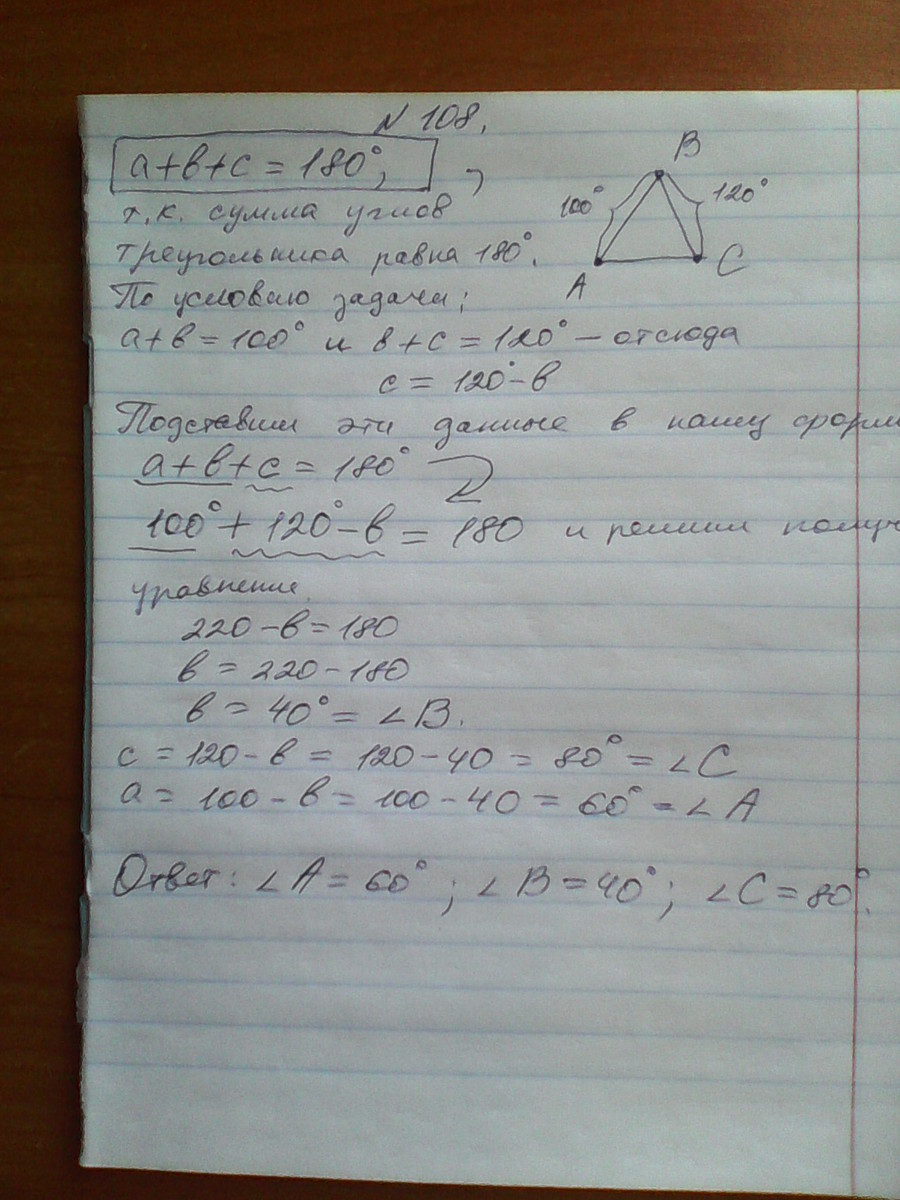 N 108.
a+в+c = 180°,
т.к. сумма углов
треугольника равна 180°.
B
100°
120°
A
C
По условию задачи:
a+в=100° и в+c=120° – отсюда
c = 120°-в
Подставим эти данные в нашу форм
a+в+c = 180°
100°+120°-в = 180 и решим получ
уравнение
220-в=180
в=220-180
в = 40° = ∠B.
c = 120-в = 120-40 = 80° = ∠C
a = 100-в = 100-40 = 60° = ∠A
Ответ: ∠A = 60°; ∠B = 40°; ∠C = 80°.